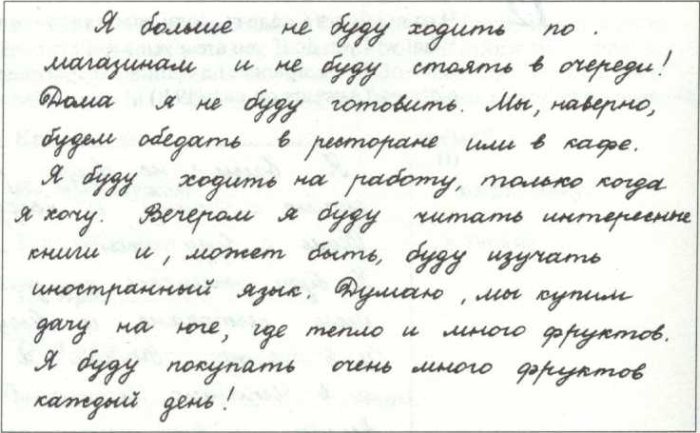 Я больше не буду ходить по
магазинам и не буду стоять в очереди!
Дома я не буду готовить. Мы, наверно,
будем обедать в ресторане или в кафе.
Я буду ходить на работу, только когда
я хочу. Вечером я буду читать интересные
книги и, может быть, буду изучать
иностранный язык. Думаю, мы купим
дачу на юге, где тепло и много фруктов.
Я буду покупать очень много фруктов
каждый день!